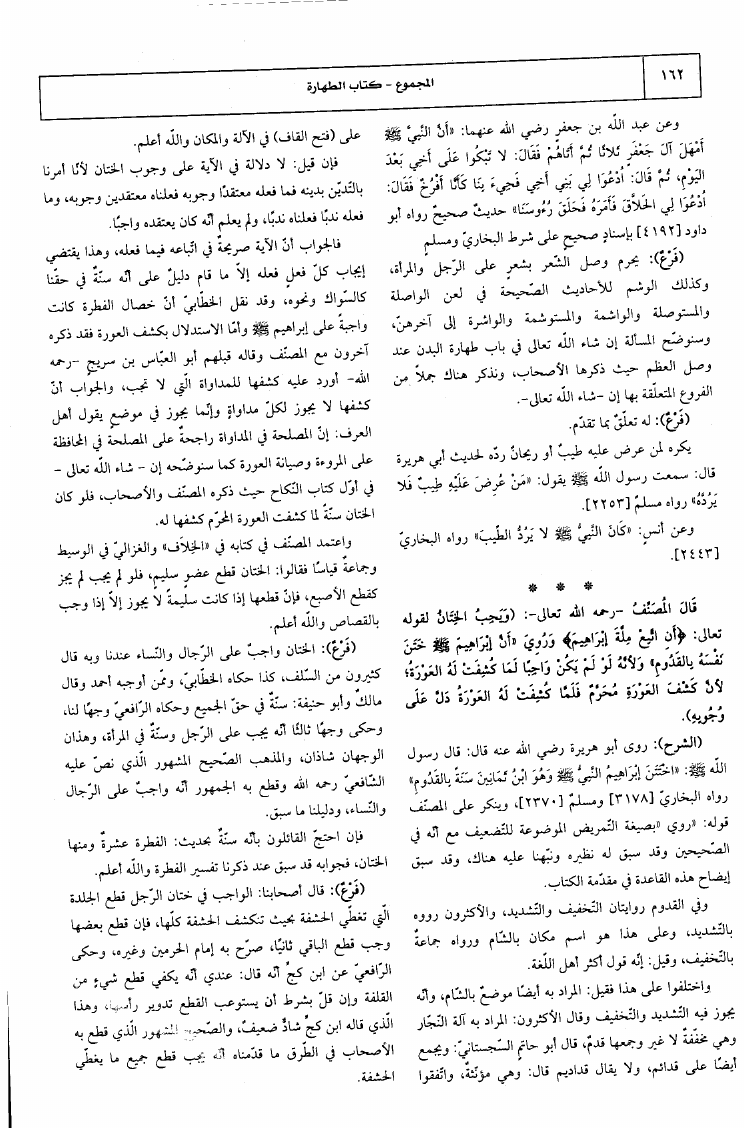 ١٦٢
المجموع - كتاب الطهارة
وعن عبد الله بن جعفر رضي الله عنهما: «أَنَّ النَّبِيَّ ﷺ
أَمْهَلَ آلَ جَعْفَرٍ ثَلاَثًا ثُمَّ أَتَاهُمْ فَقَالَ: لاَ تَبْكُوا عَلَى أَخِي بَعْدَ
الْيَوْمِ، ثُمَّ قَالَ: اُدْعُوَا لِي بَنِي أَخِي فَجِيءَ بِنَا كَأَنَّا أَفْرُخٌ فَقَالَ:
اُدْعُوَا لِي الْحَلاَّقَ فَأَمَرَهُ فَحَلَقَ رُءُوسَنَا» حديثٌ صحيحٌ رواه أبو
داود [٤١٩٢] بإسنادٍ صحيحٍ على شرط البخاريّ ومسلمٍ
(فَرْعٌ): يحرم وصل الشّعر بشعرٍ على الرّجل والمرأة،
وكذلك الوشم للأحاديث الصّحيحة في لعن الواصلة
والمستوصلة والواشمة والمستوشمة والواشرة إلى آخرهنّ،
وسنوضّح المسألة إن شاء الله تعالى في باب طهارة البدن عند
وصل العظم حيث ذكرها الأصحاب، ونذكر هناك جملاً من
الفروع المتعلّقة بها إن -شاء الله تعالى-.
(فَرْعٌ): له تعلّقٌ بما تقدّم.
يكره لمن عرض عليه طيبٌ أو ريحانٌ ردّه لحديث أبي هريرة
قال: سمعت رسول الله ﷺ يقول: «مَنْ عُرِضَ عَلَيْهِ طِيبٌ فَلاَ
يَرُدَّهُ» رواه مسلمٌ [٢٢٥٣].
وعن أنسٍ: «كَانَ النَّبِيُّ ﷺ لاَ يَرُدُّ الطِّيبَ» رواه البخاريّ
[٢٤٤٣].
* * *
قَالَ الْمُصَنِّفُ -رحمه الله تعالى-: (وَيَجِبُ الْخِتَانُ لقوله
تعالى: ﴿أَنِ اتَّبِعْ مِلَّةَ إبْرَاهِيمَ﴾ وَرُوِيَ «أَنَّ إبْرَاهِيمَ ﷺ خَتَنَ
نَفْسَهُ بِالْقَدُومِ» وَلأَنَّهُ لَوْ لَمْ يَكُنْ وَاجِبًا لَمَا كُشِفَتْ لَهُ الْعَوْرَةُ؛
لأَنَّ كَشْفَ الْعَوْرَةِ مُحَرَّمٌ فَلَمَّا كُشِفَتْ لَهُ الْعَوْرَةُ دَلَّ عَلَى
وُجُوبِهِ).
(الشرح): روى أبو هريرة رضي الله عنه قال: قال رسول
الله ﷺ: «اخْتَتَنَ إبْرَاهِيمُ النَّبِيُّ ﷺ وَهُوَ ابْنُ ثَمَانِينَ سَنَةً بِالْقَدُومِ»
رواه البخاريّ [٣١٧٨] ومسلمٌ [٢٣٧٠]، وينكر على المصنّف
قوله: «روي» بصيغة التّمريض الموضوعة للتّضعيف مع أنّه في
الصّحيحين وقد سبق له نظيره ونبّهنا عليه هناك، وقد سبق
إيضاح هذه القاعدة في مقدّمة الكتاب.
وفي القدوم روايتان التّخفيف والتّشديد، والأكثرون رووه
بالتّشديد، وعلى هذا هو اسم مكانٍ بالشّام ورواه جماعةٌ
بالتّخفيف، وقيل: إنّه قول أكثر أهل اللّغة.
واختلفوا على هذا فقيل: المراد به أيضًا موضعٌ بالشّام، وأنّه
يجوز فيه التّشديد والتّخفيف وقال الأكثرون: المراد به آلة النّجّار
وهي مخفّفةٌ لا غير وجمعها قدمٌ، قال أبو حاتمٍ السّجستانيّ: ويجمع
أيضًا على قدائم، ولا يقال قداديم قال: وهي مؤنّثةٌ، واتّفقوا
على (فتح القاف) في الآلة والمكان والله أعلم.
فإن قيل: لا دلالة في الآية على وجوب الختان لأنّا أمرنا
بالتّديّن بدينه فما فعله معتقدًا وجوبه فعلناه معتقدين وجوبه، وما
فعله ندبًا فعلناه ندبًا، ولم يعلم أنّه كان يعتقده واجبًا.
فالجواب أنّ الآية صريحةٌ في اتّباعه فيما فعله، وهذا يقتضي
إيجاب كلّ فعلٍ فعله إلاّ ما قام دليلٌ على أنّه سنّةٌ في حقّنا
كالسّواك ونحوه، وقد نقل الخطّابيّ أنّ خصال الفطرة كانت
واجبةً على إبراهيم ﷺ وأمّا الاستدلال بكشف العورة فقد ذكره
آخرون مع المصنّف وقاله قبلهم أبو العبّاس بن سريجٍ -رحمه
الله- أورد عليه كشفها للمداواة الّتي لا تجب، والجواب أنّ
كشفها لا يجوز لكلّ مداواةٍ وإنّما يجوز في موضعٍ يقول أهل
العرف: إنّ المصلحة في المداواة راجحةٌ على المصلحة في المحافظة
على المروءة وصيانة العورة كما سنوضّحه إن - شاء الله تعالى -
في أوّل كتاب النّكاح حيث ذكره المصنّف والأصحاب، فلو كان
الختان سنّةً لما كشفت العورة المحرّم كشفها له.
واعتمد المصنّف في كتابه في «الخِلاَف» والغزاليّ في الوسيط
وجماعةٌ قياسًا فقالوا: الختان قطع عضوٍ سليمٍ، فلو لم يجب لم يجز
كقطع الأصبع، فإنّ قطعها إذا كانت سليمةً لا يجوز إلاّ إذا وجب
بالقصاص والله أعلم.
(فَرْعٌ): الختان واجبٌ على الرّجال والنّساء عندنا وبه قال
كثيرون من السّلف، كذا حكاه الخطّابيّ، وممّن أوجبه أحمد وقال
مالكٌ وأبو حنيفة: سنّةٌ في حقّ الجميع وحكاه الرّافعيّ وجهًا لنا،
وحكى وجهًا ثالثًا أنّه يجب على الرّجل وسنّةٌ في المرأة، وهذان
الوجهان شاذّان، والمذهب الصّحيح المشهور الّذي نصّ عليه
الشّافعيّ رحمه الله وقطع به الجمهور أنّه واجبٌ على الرّجال
والنّساء، ودليلنا ما سبق.
فإن احتجّ القائلون بأنّه سنّةٌ بحديث: الفطرة عشرةٌ ومنها
الختان، فجوابه قد سبق عند ذكرنا تفسير الفطرة والله أعلم.
(فَرْعٌ): قال أصحابنا: الواجب في ختان الرّجل قطع الجلدة
الّتي تغطّي الحشفة بحيث تنكشف الحشفة كلّها، فإن قطع بعضها
وجب قطع الباقي ثانيًا، صرّح به إمام الحرمين وغيره، وحكى
الرّافعيّ عن ابن كجٍّ أنّه قال: عندي أنّه يكفي قطع شيءٍ من
القلفة وإن قلّ بشرط أن يستوعب القطع تدوير رأسها، وهذا
الّذي قاله ابن كجٍّ شاذٌّ ضعيفٌ، والصّحيح المشهور الّذي قطع به
الأصحاب في الطّرق ما قدّمناه أنّه يجب قطع جميع ما يغطّي
الحشفة.